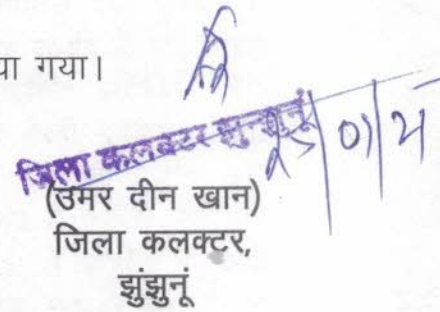 या गया।
जिला कलक्टर झुन्झुनूं
(उमर दीन खान)
जिला कलक्टर,
झुंझुनूं